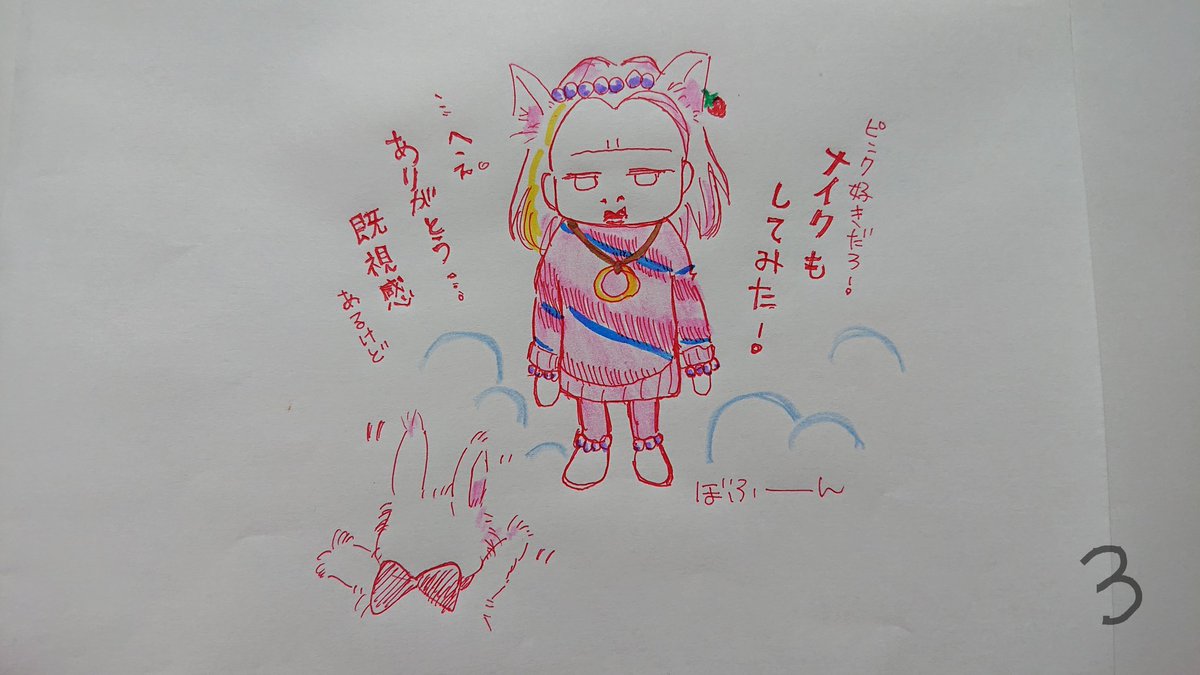 ピンク好きだろ!
メイクも
してみた!
…へえ。
ありがとう…。
既視感
あるけど
ぼふーーん
3